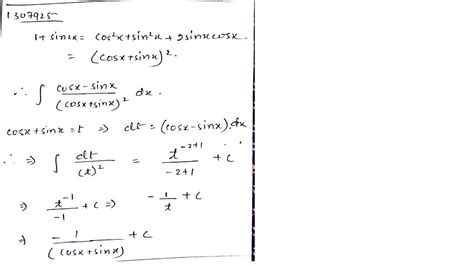 1307925
1 + sin2x = cos²x + sin²x + 2sinxcosx.
= (cosx + sinx)².
∴ ∫ (cosx - sinx)/(cosx + sinx)² dx.
cosx + sinx = t ⇒ dt = (cosx - sinx).dx
∴ ⇒ ∫ dt/(t)² = t^(-2+1)/(-2+1) + c
⇒ t^(-1)/(-1) + c ⇒ -1/t + c
⇒ -1/(cosx + sinx) + c